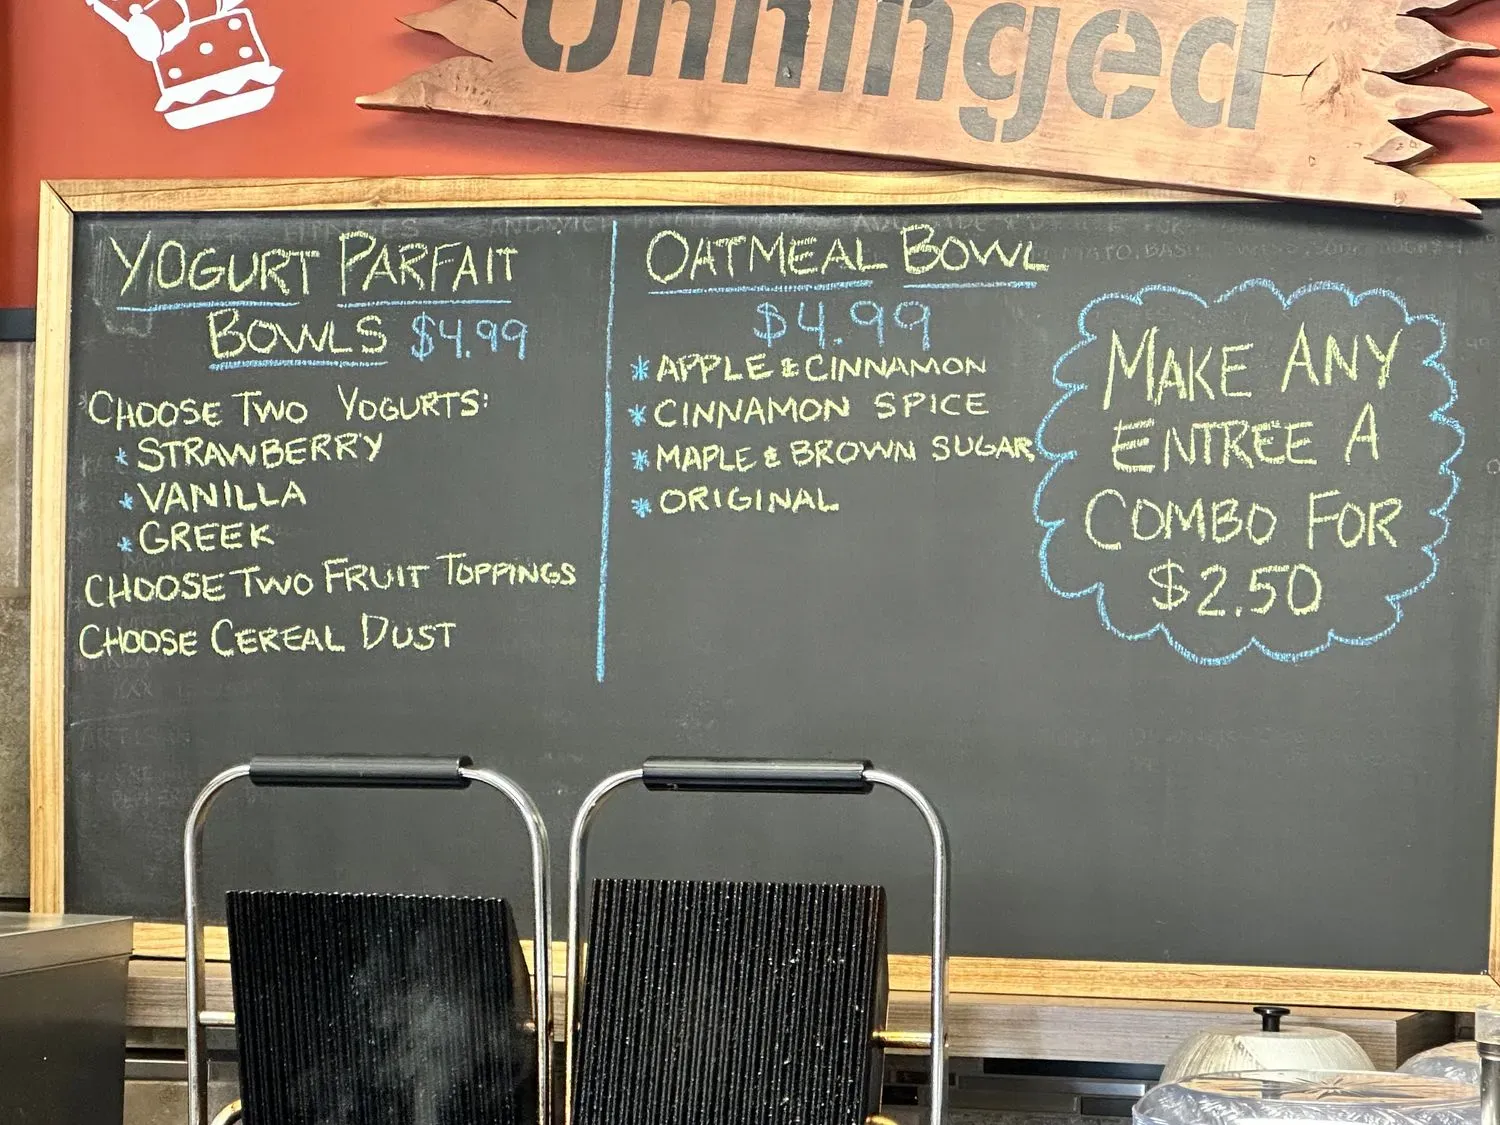 Unhinged
YOGURT PARFAIT
BOWLS $4.99
CHOOSE TWO YOGURTS:
* STRAWBERRY
* VANILLA
* GREEK
CHOOSE TWO FRUIT TOPPINGS
CHOOSE CEREAL DUST
OATMEAL BOWL
$4.99
* APPLE & CINNAMON
* CINNAMON SPICE
* MAPLE & BROWN SUGAR
* ORIGINAL
MAKE ANY
ENTREE A
COMBO FOR
$2.50